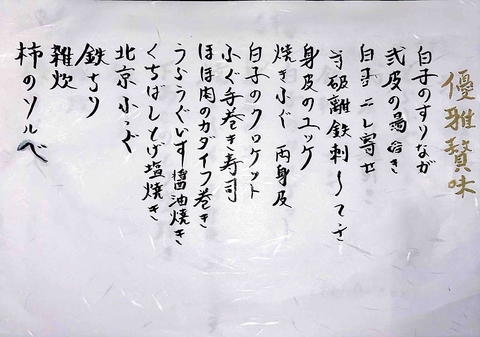 優雅贅味
白子のすりながし
弐皮の湯引き
白子こし寄せ
守破離鉄刺し てっさ
身皮のユッケ
焼きふぐ 両身皮
白子のクロケット
ふぐ手巻き寿司
ほほ肉のカダイフ巻き
うぐいす醤油焼き
くちばしとげ塩焼き
北京ふぐ
鉄ちり
雑炊
柿のソルベ